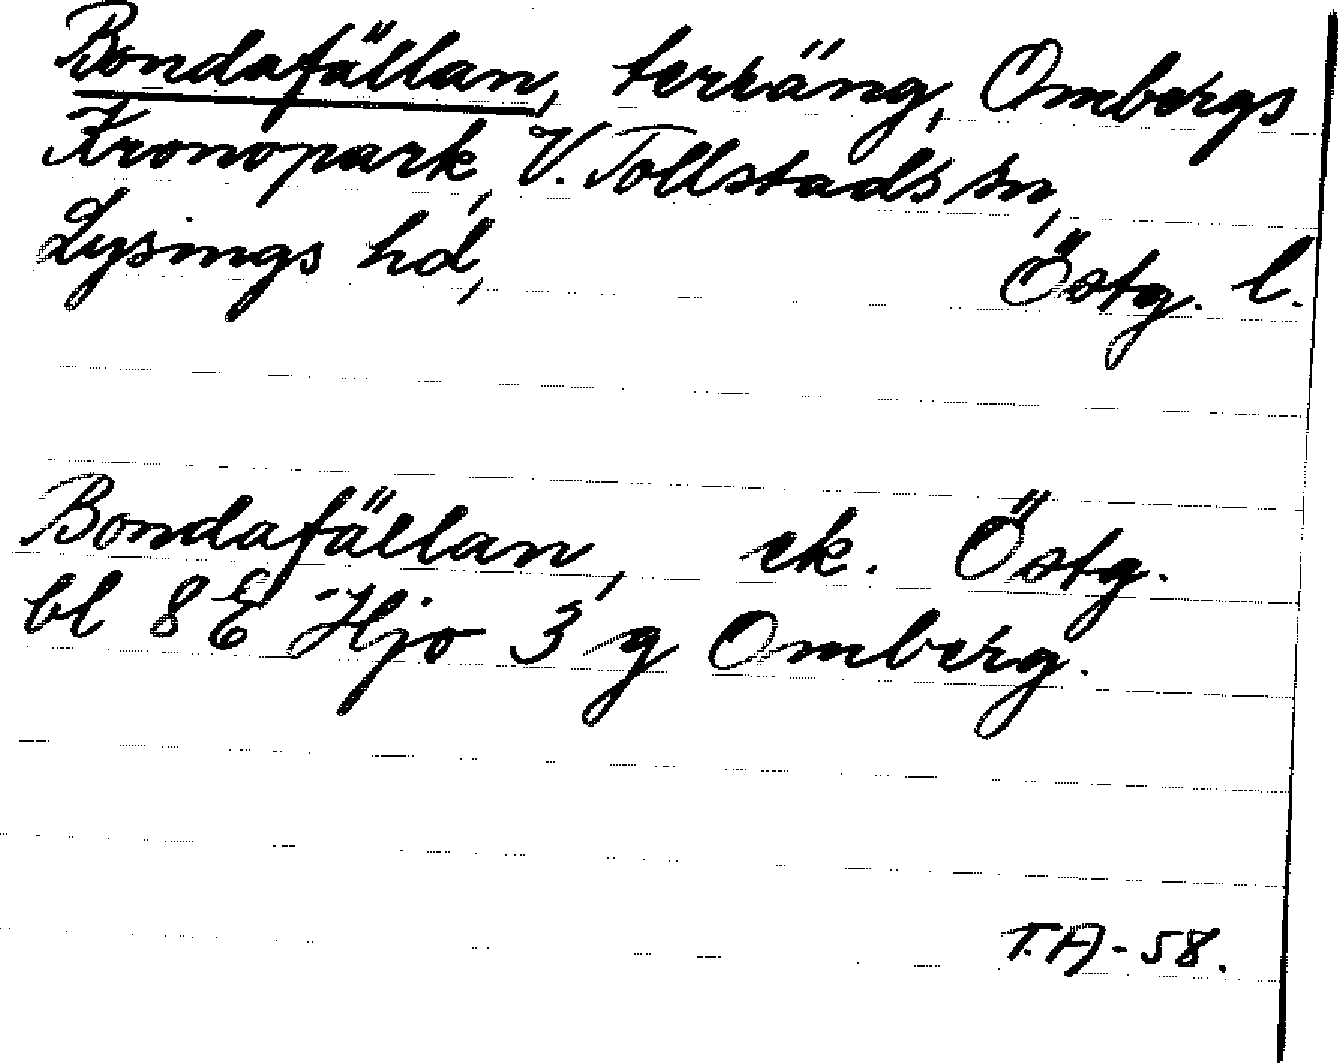 Bondafällan, terräng, Ombergs
Kronopark, V. Tollstads sn,
Lysings hd, Östg. l.
Bondafällan, ek. Östg.
bl 8 E Hjo 3 g Omberg.
T.A-58.